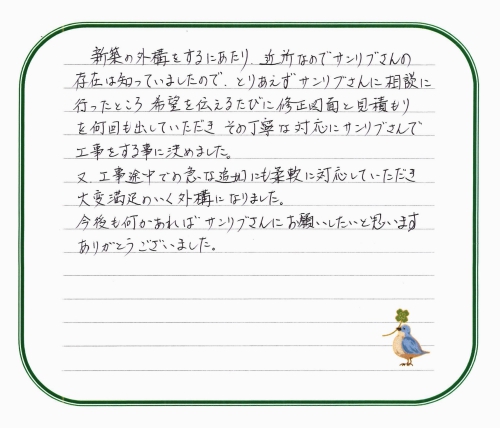 新築の外構をするにあたり、近所なのでサンリブさんの
存在は知っていましたので、とりあえずサンリブさんに相談に
行ったところ 希望を伝えるたびに修正図面と見積もり
を何回も出していただき その丁寧な対応にサンリブさんで
工事をする事に決めました。
又、工事途中での急な追加にも柔軟に対応していただき
大変満足のいく外構になりました。
今後も何かあればサンリブさんにお願いしたいと思います
ありがとうございました。